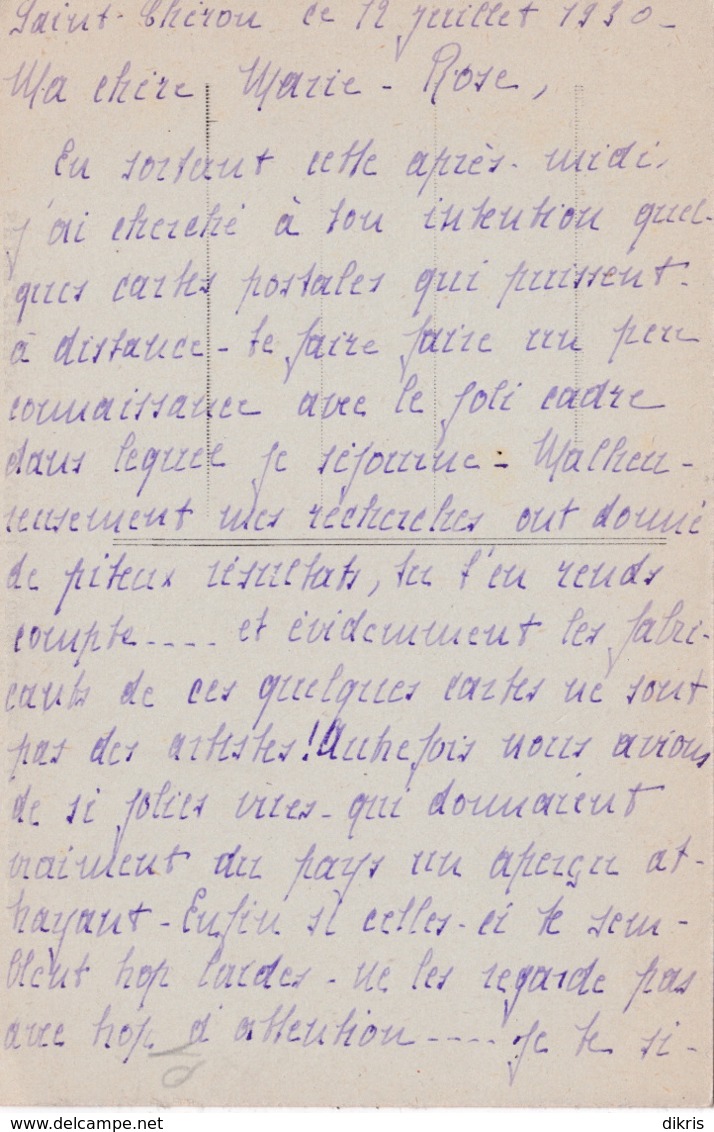 Saint-Chéron ce 12 juillet 1930-
Ma chère Marie-Rose,
En sortant cette après-midi,
j'ai cherché à ton intention quel-
ques cartes postales qui puissent-
à distance- te faire faire un peu
connaissance avec le joli cadre
dans lequel je séjourne- Malheu-
reusement mes recherches ont donné
de piteux résultats, tu t'en rends
compte.... et évidemment les fabri-
cants de ces quelques cartes ne sont
pas des artistes! Autrefois nous avions
de si jolies vues- qui donnaient
vraiment du pays un aperçu at-
trayant- Enfin si celles-ci te sem-
blent trop laides- ne les regarde pas
avec trop d'attention.... Je te si-
delcampe.net
dikris